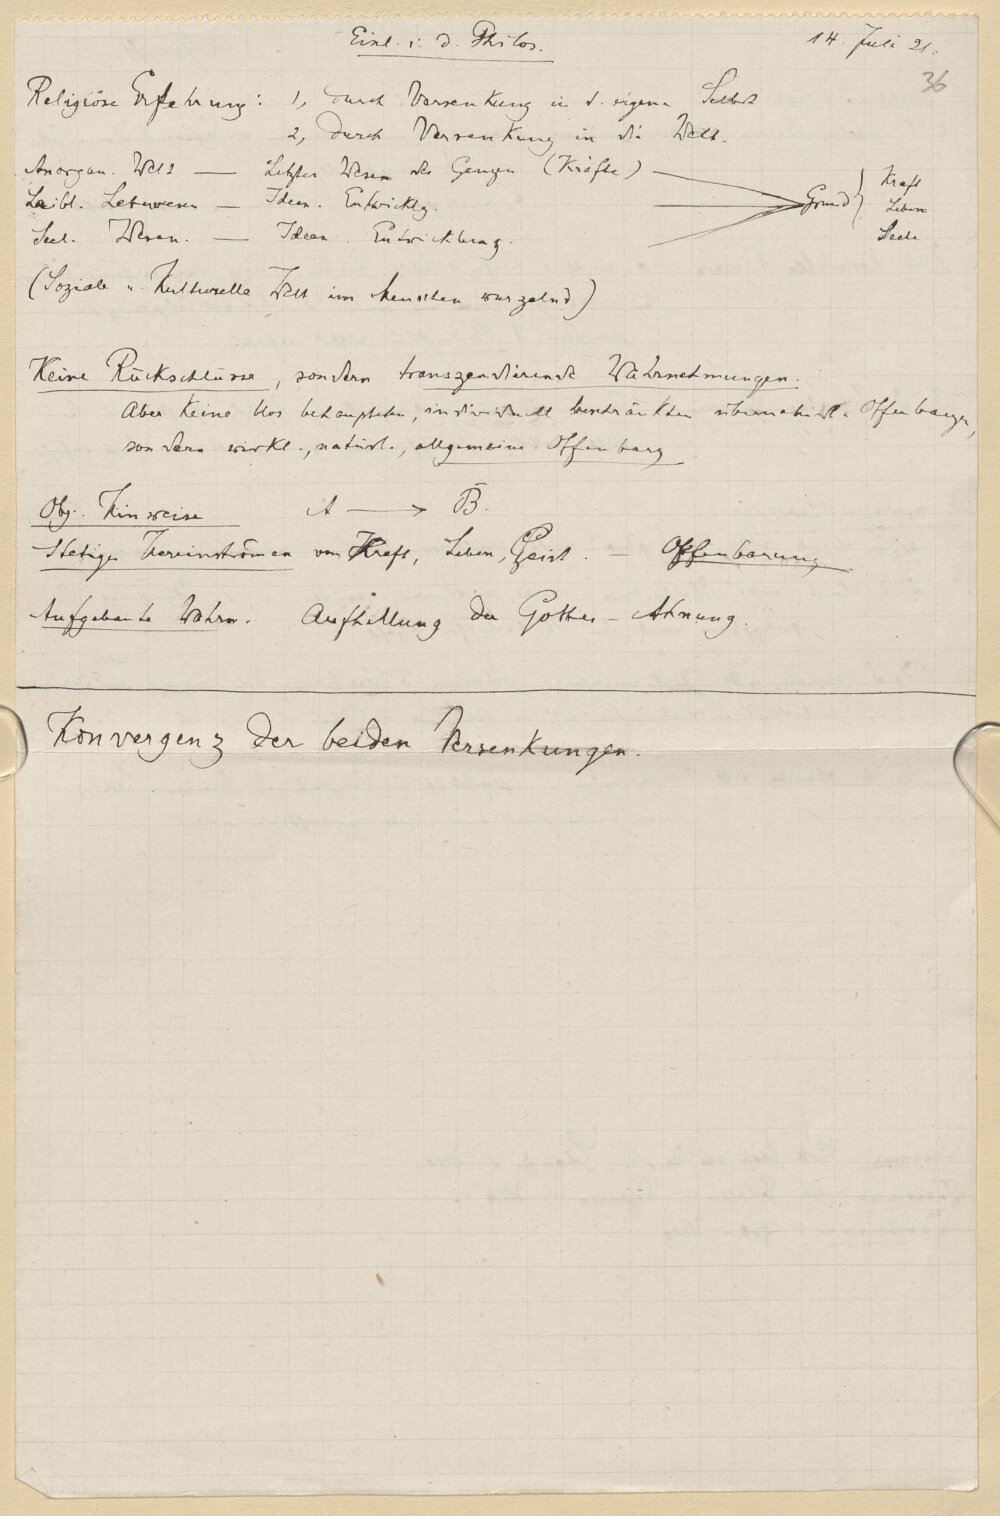 Einl. i. d. Philos.
14. Juli 21.
36
Religiöse Erfahrung: 1, durch Versenkung in d. eigene Selbst
2, durch Versenkung in die Welt.
Anorgan. Welt — Letztes Wesen des Ganzen (Kräfte)
Leibl. Lebewesen — Ideen. Entwicklg.
Seel. Wesen. — Ideen. Entwicklung.
Grund } Kraft
Leben
Seele
(Soziale u. Kulturelle Welt im Menschen wurzelnd)
Keine Rückschlüsse, sondern transzendierende Wahrnehmungen.
Aber keine blos behaupteten, individuell beschränkten Offenbargen,
sondern wirkl., natürl., allgemeine Offenbarg
Obj. Hinweise A → B.
Stetiges Hereinströmen von Kraft, Leben, Geist. — Offenbarung
Aufgebaute Wahrn. Aufhellung der Gottes-Ahnung.
Konvergenz der beiden Versenkungen.